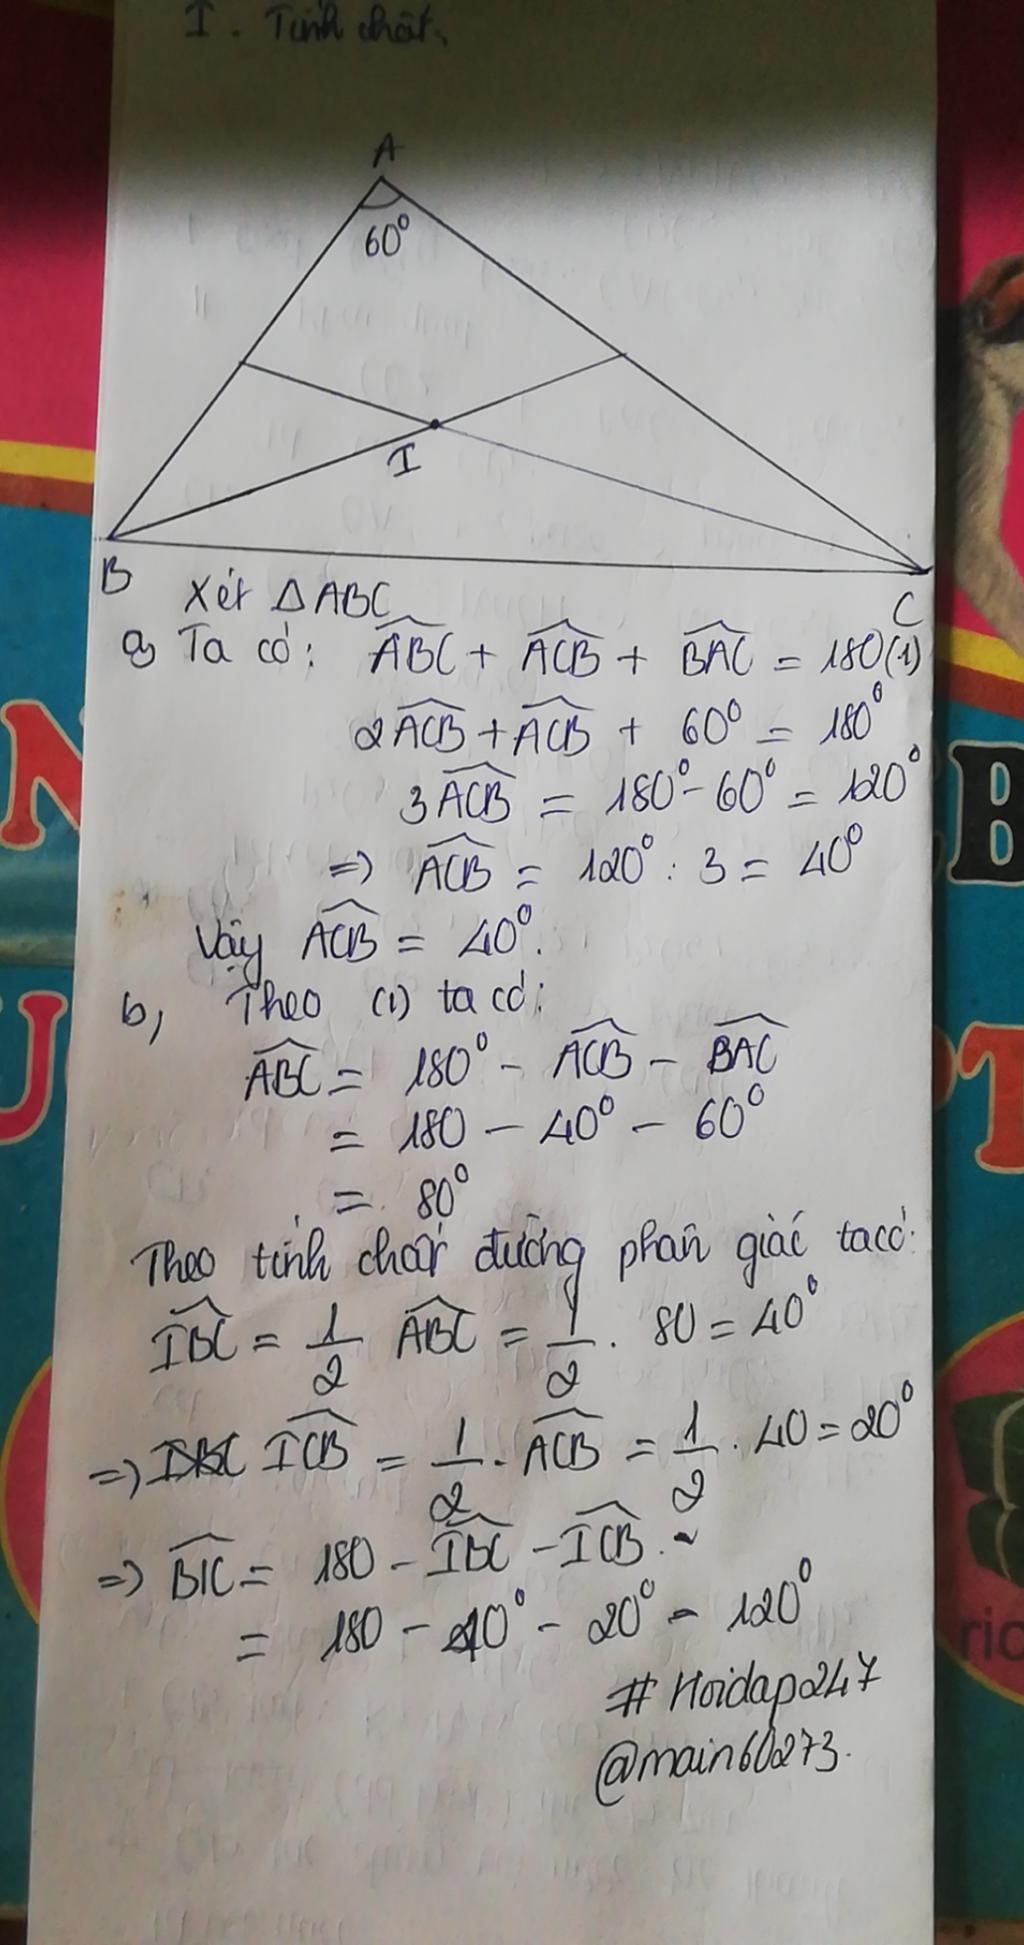 I. Tính chất.
A
60°
I
B
C
Xét ΔABC
a, Ta có: ABC + ACB + BAC = 180 (1)
2ACB + ACB + 60° = 180°
3ACB = 180° - 60° = 120°
=> ACB = 120° : 3 = 40°
Vậy ACB = 40°.
b, Theo (1) ta có:
ABC = 180° - ACB - BAC
= 180 - 40° - 60°
= 80°
Theo tính chất đường phân giác ta có:
IBC = 1/2 ABC = 1/2 . 80 = 40°
=> ICB = 1/2 . ACB = 1/2 . 40 = 20°
=> BIC = 180 - IBC - ICB
= 180 - 40° - 20° - 120°
# Hoidap247
@main60273.
N
U
B
PT
rio